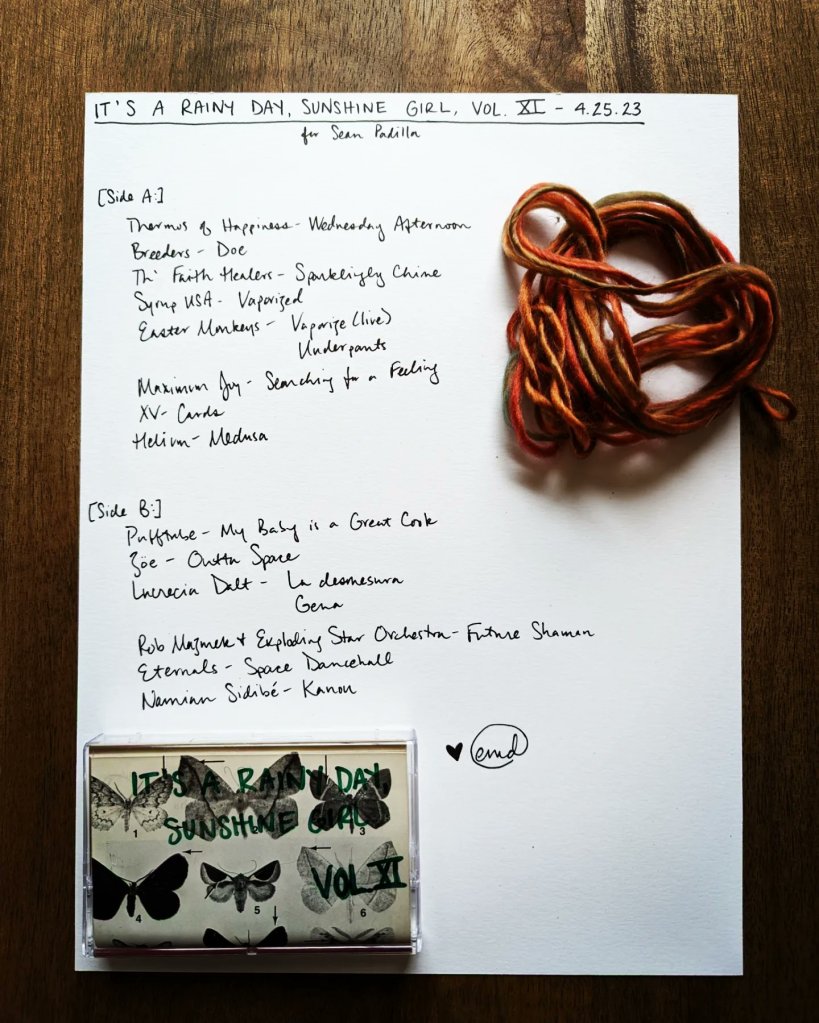 IT'S A RAINY DAY, SUNSHINE GIRL, VOL. XI - 4.25.23
for Sean Padilla
[Side A:]
Thermos of Happiness - Wednesday Afternoon
Breeders - Doe
Th' Faith Healers - Sparklingly Chime
Syrup USA - Vaporized
Easter Monkeys - Vaporize (live)
Underpants
Maximum Joy - Searching for a Feeling
XV - Cards
Helium - Medusa
[Side B:]
Pufftube - My Baby is a Great Cook
Zöe - Outta Space
Lucrecia Dalt - La desmesura
Gena
Rob Mazurek + Exploding Star Orchestra - Future Shaman
Eternals - Space Dancehall
Namian Sidibé - Kanou
♥ emd
IT'S A RAINY DAY,
SUNSHINE GIRL
VOL XI
1
3
4
5
6